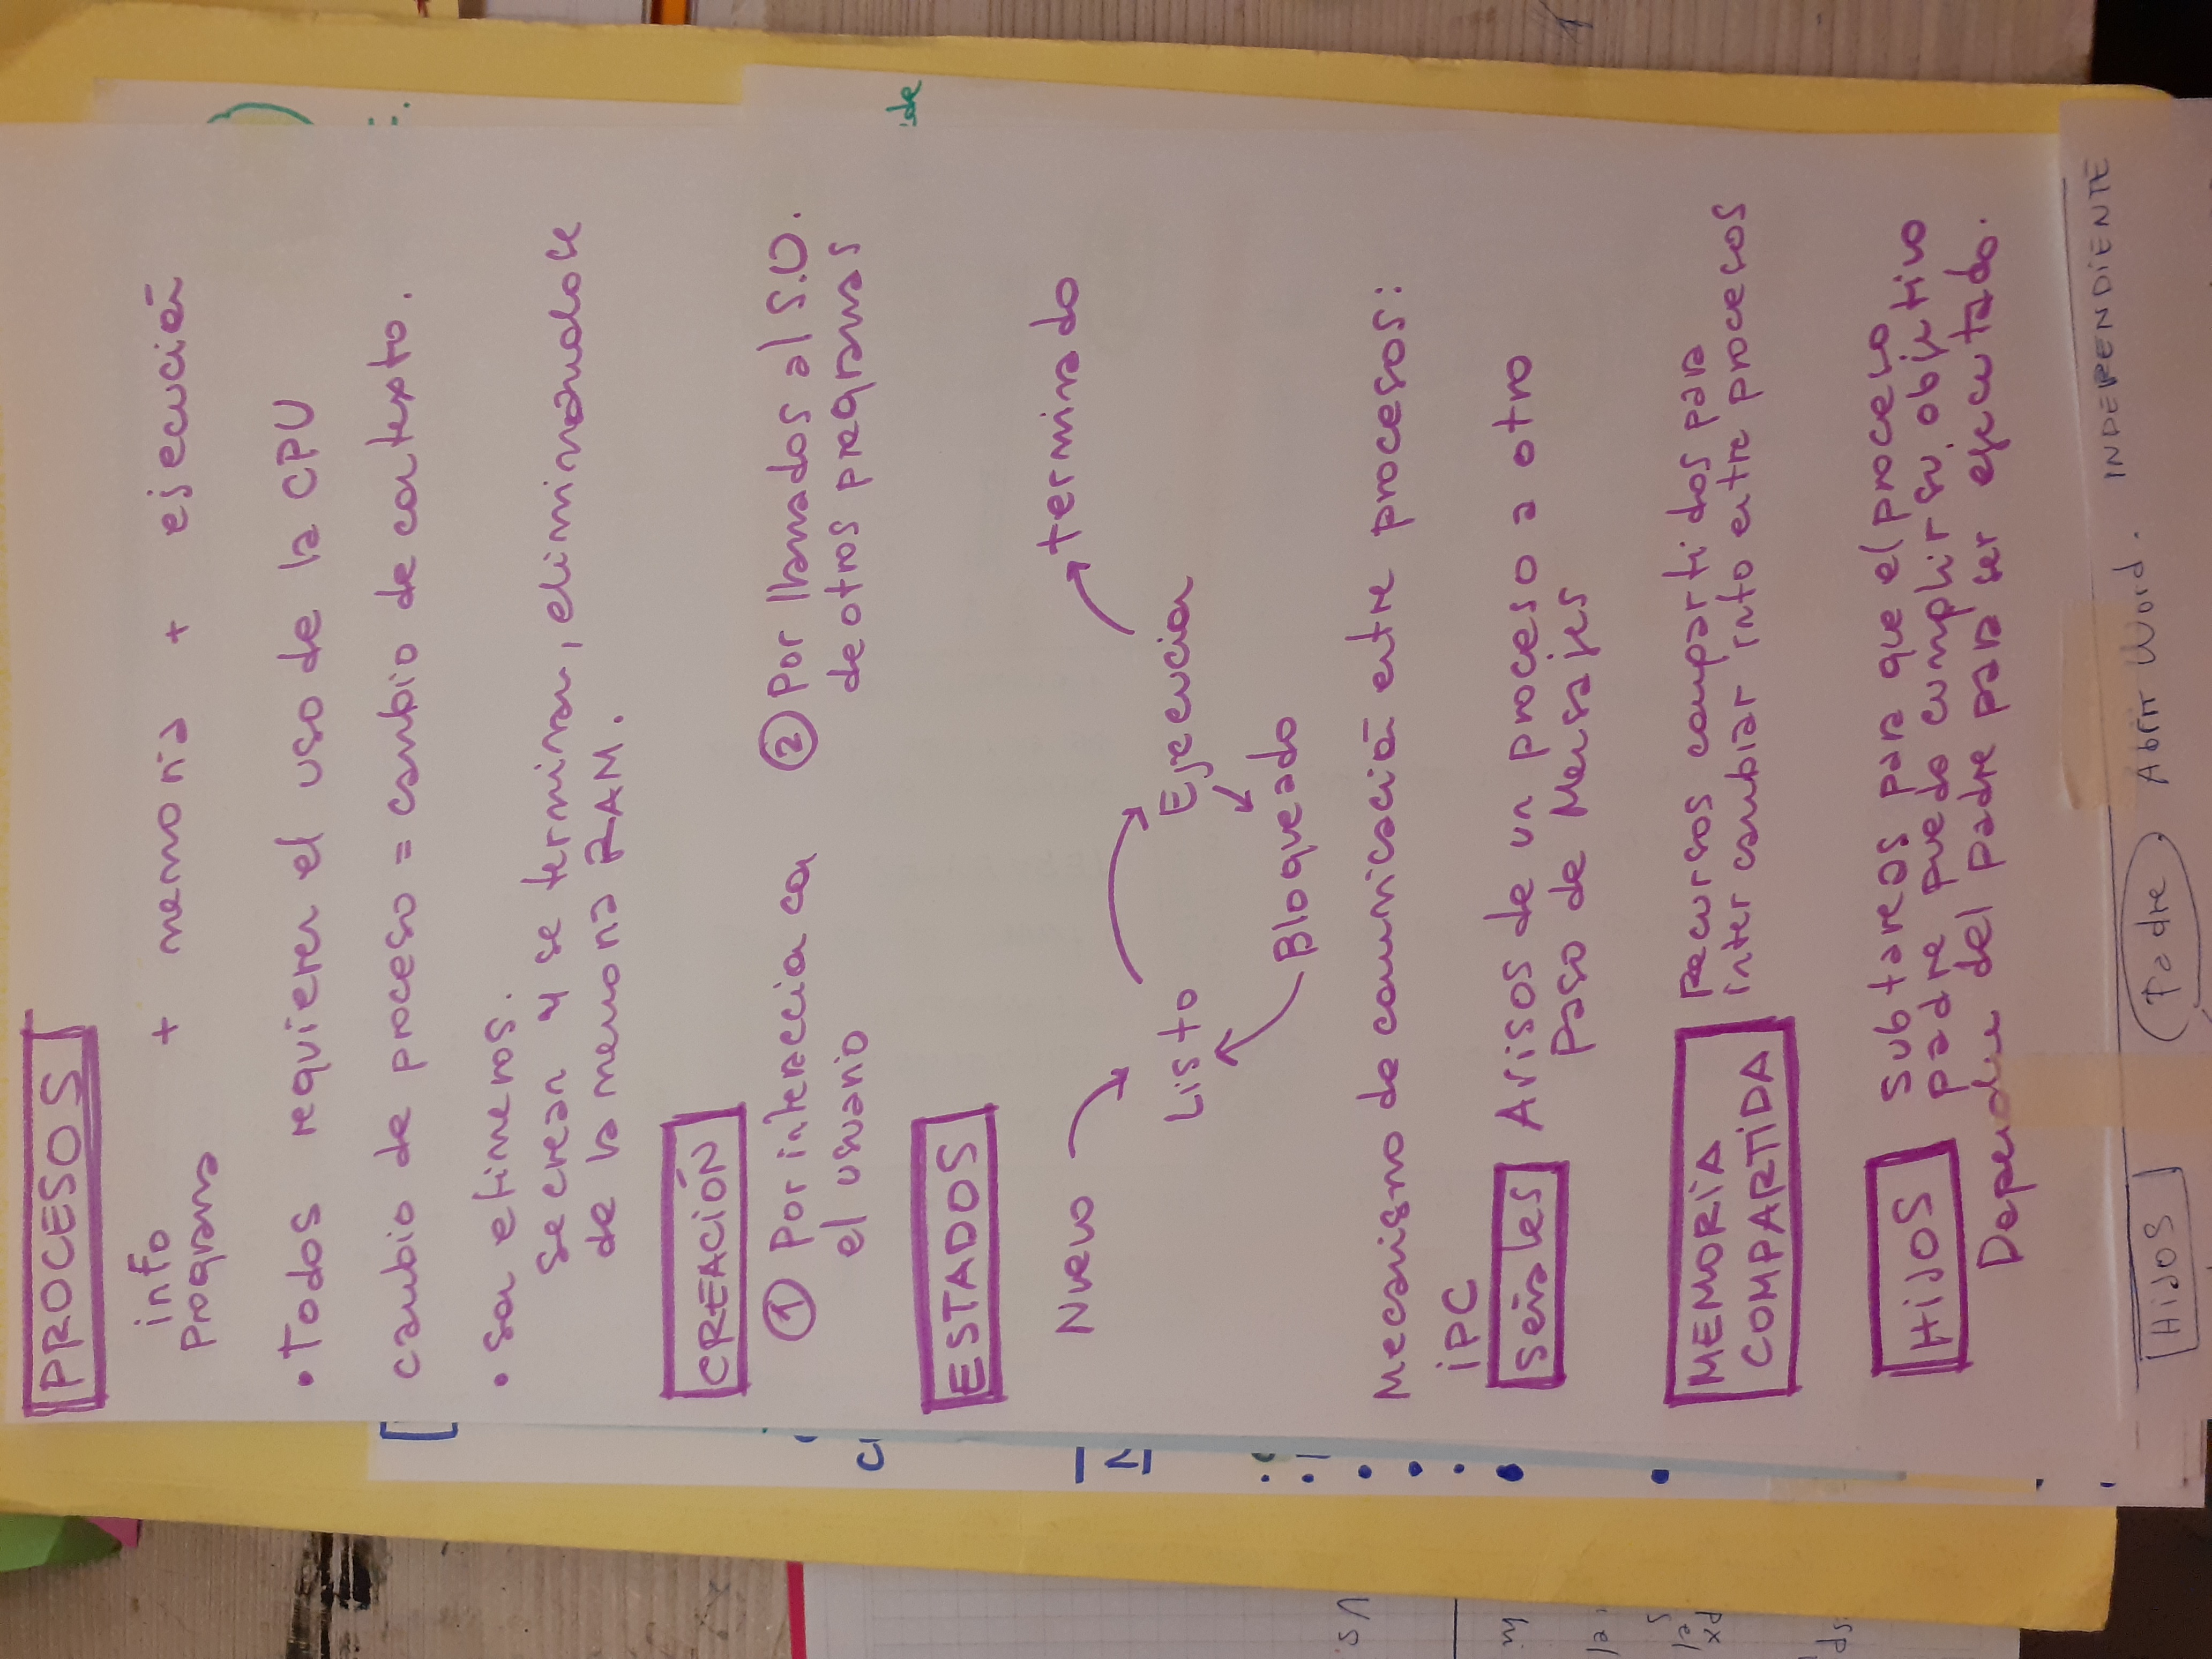 PROCESOS
info + memoria + ejecución
Programa
• Todos requieren el uso de la CPU
cambio de proceso = cambio de contexto.
• Son efímeros.
Se crean y se terminan, eliminándose
de la memoria RAM.
CREACIÓN
① Por interacción con ② Por llamados al S.O.
el usuario de otros programas
ESTADOS
Nuevo terminado
Listo Ejecución
Bloqueado
Mecanismo de comunicación entre procesos:
iPC
señales Avisos de un proceso a otro
Paso de Mensajes
MEMORIA Recursos compartidos para
COMPARTIDA intercambiar info entre procesos
HIJOS Subtareas para que el proceso
padre pueda cumplir su objetivo
Depende del padre para ser ejecutado.
INDEPENDIENTE
HIJOS Padre Abrir Word.